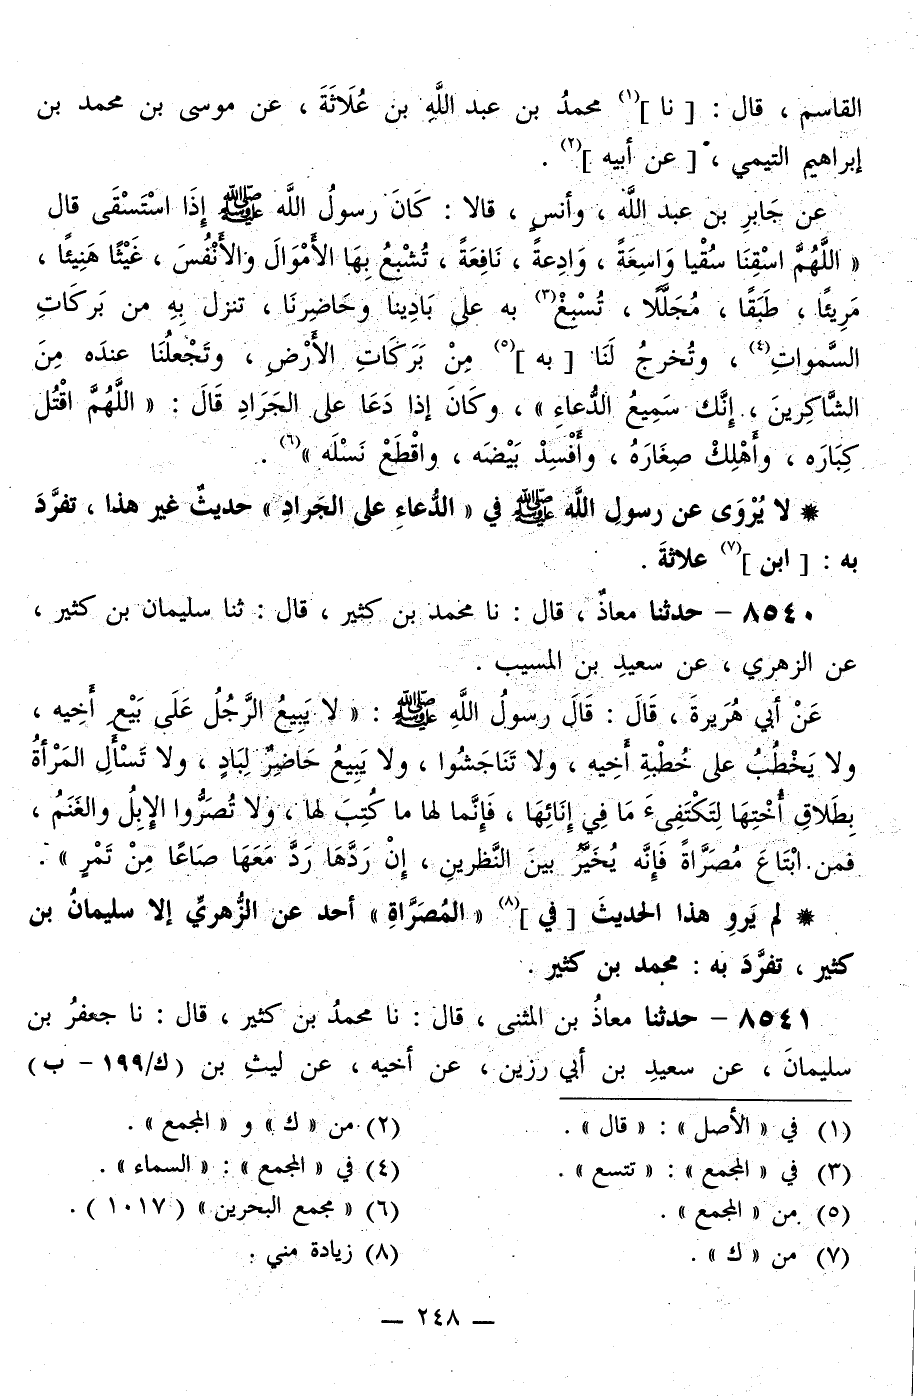 القاسم ، قال : [ نا ](١) محمدُ بن عبد اللَّهِ بن عُلَاثَةَ ، عن موسى بن محمد بن
إبراهيم التيمي ، [ عن أبيه ](٢) .
عن جَابرِ بن عبد اللَّه ، وأنسٍ ، قالا : كَانَ رسولُ اللَّه ﷺ إِذَا اسْتَسْقَى قال
« اللَّهُمَّ اسْقِنَا سُقْيا وَاسِعَةً ، وَادِعةً ، نَافِعَةً ، تُشْبِعُ بِهَا الأَمْوَالَ والأَنْفُسَ ، غَيْثًا هَنِيئًا ،
مَرِيئًا ، طَبَقًا ، مُجَلَّلًا ، تُسْبِغْ(٣) به على بَادِينا وحَاضِرِنَا ، تنزل بِهِ من بَركَاتِ
السَّمواتِ(٤) ، وتُخرجُ لَنَا [ به ](٥) مِنْ بَرَكَاتِ الأَرْضِ ، وتَجْعلُنَا عندَه مِنَ
الشَّاكِرِينَ ، إِنَّك سَمِيعُ الدُّعاءِ » ، وكَانَ إذا دَعَا على الجَرَادِ قَالَ : « اللَّهُمَّ اقْتُل
كِبَارَه ، وأَهْلِكْ صغَارَهُ ، وأَفْسِدْ بَيْضَه ، واقْطَعْ نَسْلَه »(٦) .
* لا يُرْوَى عن رسولِ اللَّه ﷺ في « الدُّعاءِ على الجَرادِ » حديثٌ غير هذا ، تفرَّدَ
به : [ ابن ](٧) علاثةَ .
٨٥٤٠ – حدثنا معاذٌ ، قال : نا محمد بن كثير ، قال : ثنا سليمان بن كثير ،
عن الزهري ، عن سعيدِ بن المسيب .
عَنْ أبي هُرَيرةَ ، قَالَ : قَالَ رسولُ اللَّهِ ﷺ : « لا يَبِيعُ الرَّجُلُ عَلَى بَيْعِ أَخِيه ،
ولا يَخْطُبُ على خُطْبةِ أَخِيه ، ولا تَنَاجَشُوا ، ولا يَبِيعُ حَاضِرٌ لِبَادٍ ، ولا تَسْأَلِ المَرْأَةُ
بِطَلاقِ أُخْتِهَا لِتَكْتَفِىءَ مَا فِي إِنَائِهَا ، فَإِنَّما لها ما كُتِبَ لها ، ولا تُصَرُّوا الإِبِلُ والغَنَمُ ،
فمن ابْتَاعَ مُصَرَّاةً فَإِنَّه يُخَيَّرُ بينَ النَّظرينِ ، إِنْ رَدَّهَا رَدَّ مَعَهَا صَاعًا مِنْ تَمْرٍ » .
* لم يَروِ هذا الحديثَ [ في ](٨) « المُصَرَّاةِ » أحد عن الزُّهريِّ إلا سليمانُ بن
كثير ، تفرَّدَ به : محمد بن كثير .
٨٥٤١ – حدثنا معاذُ بن المثنى ، قال : نا محمدُ بن كثير ، قال : نا جعفرُ بن
سليمانَ ، عن سعيدِ بن أبي رزين ، عن أخيه ، عن ليثِ بن ( ك/١٩٩ – ب )
(١) في « الأصل » : « قال » .
(٢) من « ك » و « المجمع » .
(٣) في « المجمع » : « تتسع » .
(٤) في « المجمع » : « السماء » .
(٥) من « المجمع » .
(٦) « مجمع البحرين » ( ١٠١٧ ) .
(٧) من « ك » .
(٨) زيادة مني .
— ٢٤٨ —